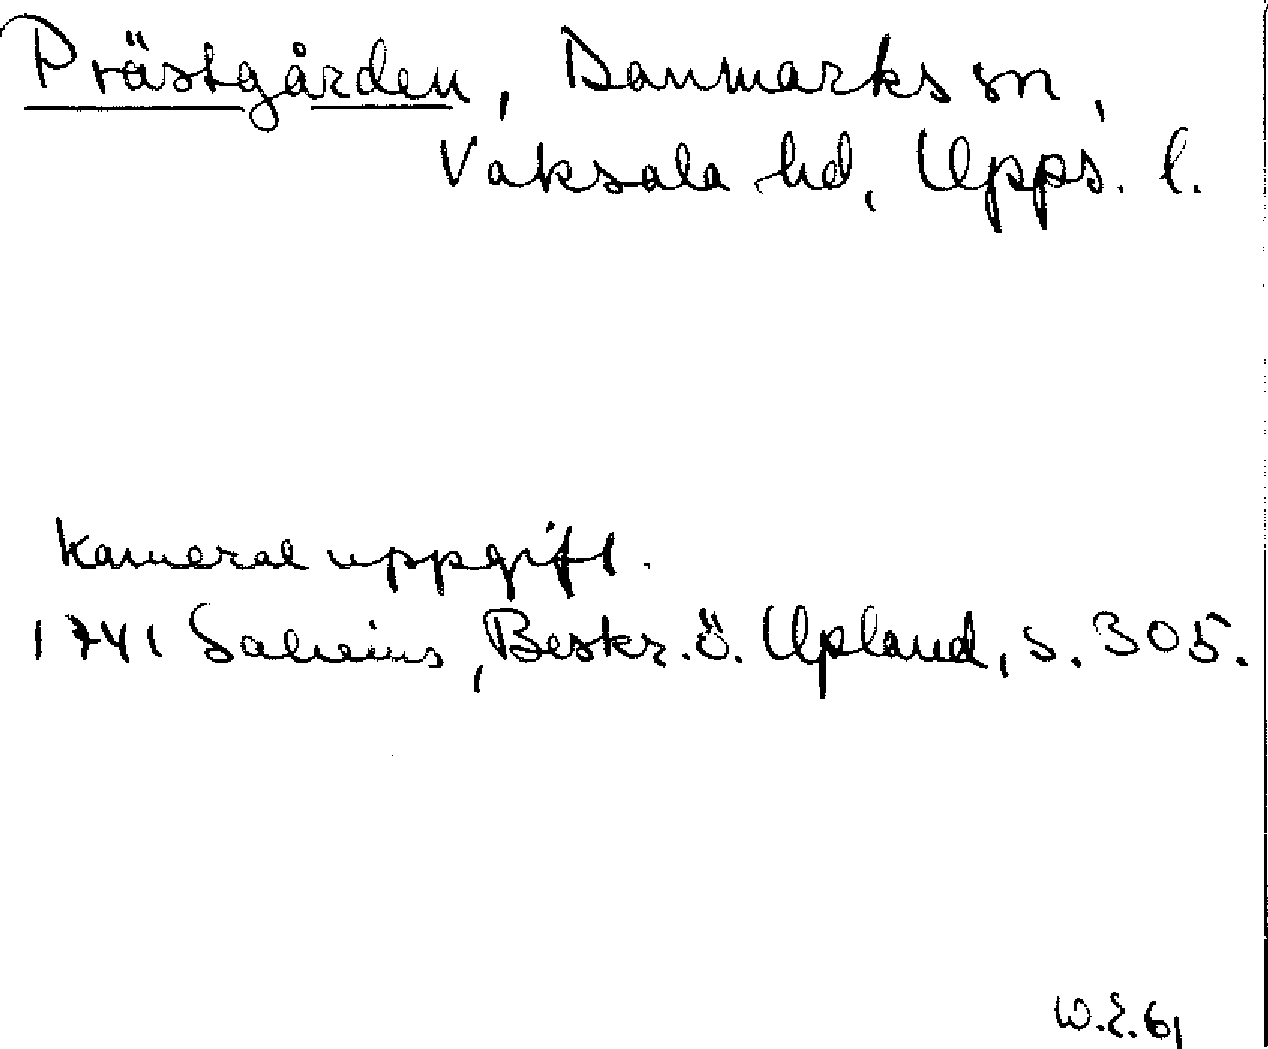 Prästgården, Danmarks sn,
Vaksala hd, Upps. l.
Kameral uppgift.
1741 Salvius, Beskr. ö. Upland, s. 305.
W.E. 61